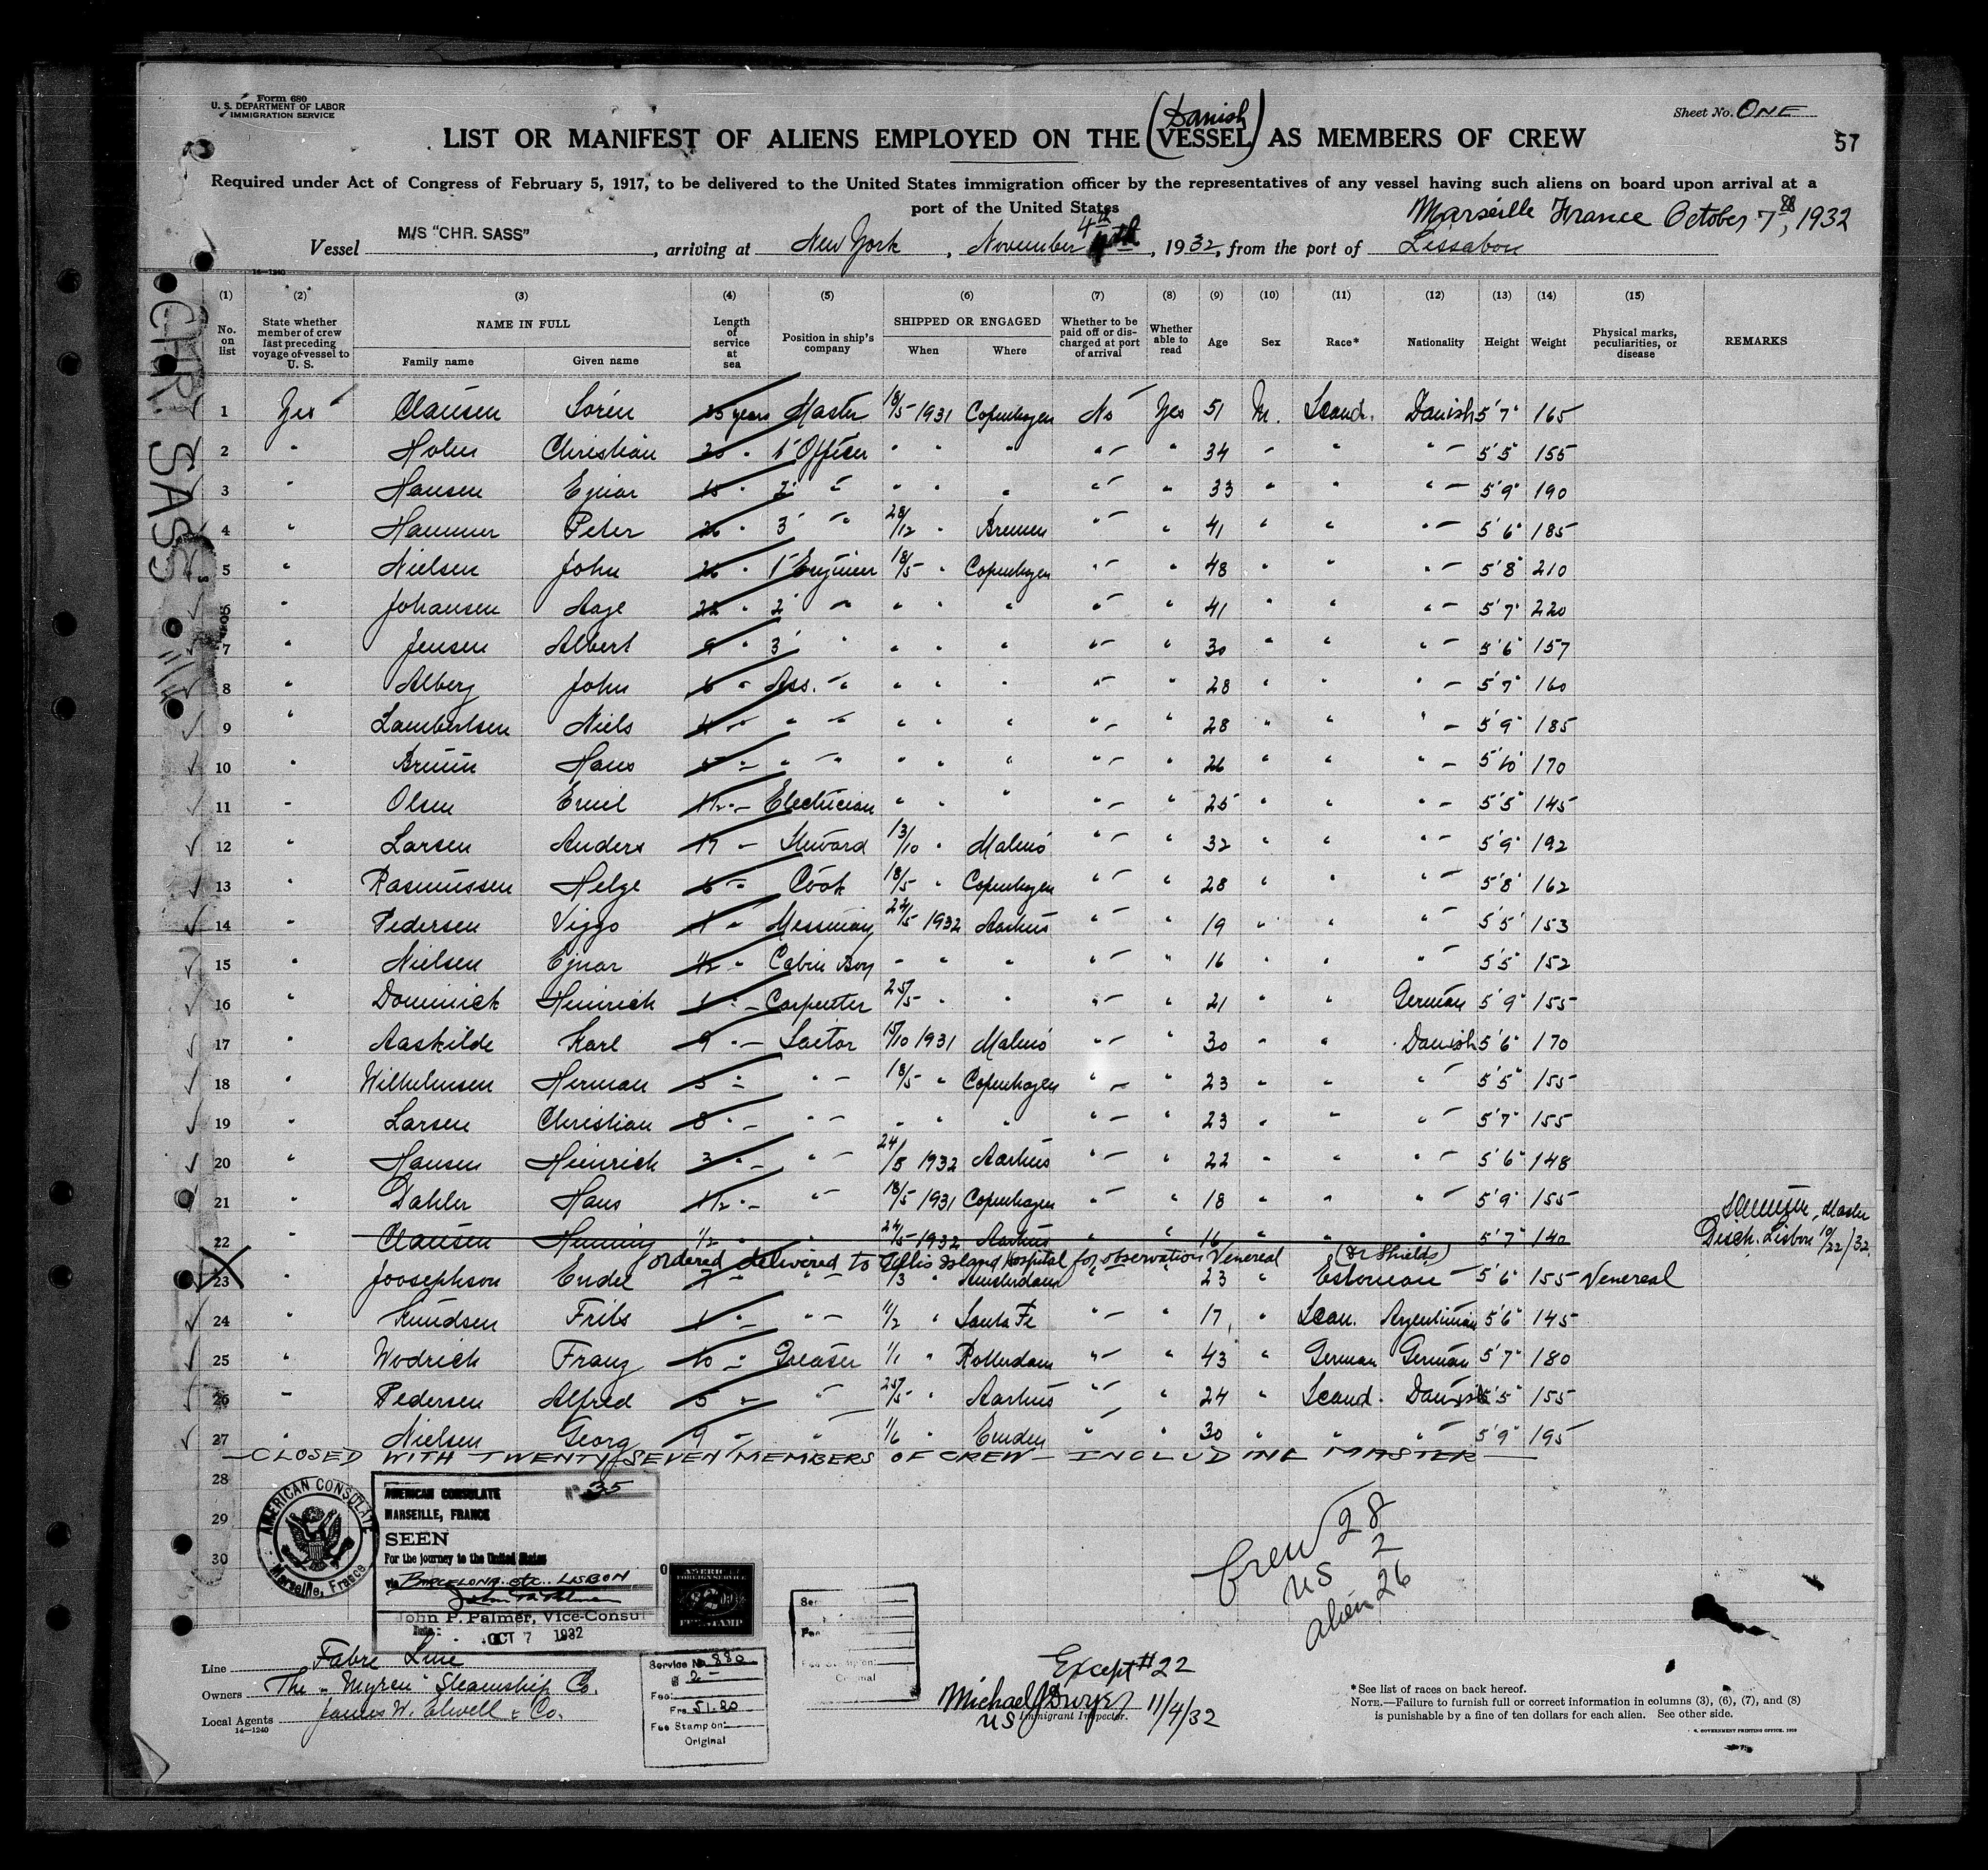 Form 680
U. S. DEPARTMENT OF LABOR
IMMIGRATION SERVICE
Sheet No. ONE
57
LIST OR MANIFEST OF ALIENS EMPLOYED ON THE (Danish VESSEL) AS MEMBERS OF CREW
Required under Act of Congress of February 5, 1917, to be delivered to the United States immigration officer by the representatives of any vessel having such aliens on board upon arrival at a
port of the United States
Marseille France October 7, 1932
Vessel M/S "CHR. SASS", arriving at New York, November 4th, 1932, from the port of Lissabon
14—1240
(1) (2) (3) (4) (5) (6) (7) (8) (9) (10) (11) (12) (13) (14) (15)
No. on list
State whether member of crew last preceding voyage of vessel to U. S.
NAME IN FULL
Family name
Given name
Length of service at sea
Position in ship's company
SHIPPED OR ENGAGED
When
Where
Whether to be paid off or discharged at port of arrival
Whether able to read
Age
Sex
Race*
Nationality
Height
Weight
Physical marks, peculiarities, or disease
REMARKS
CHR. SASS
1 Yes Clausen Sören 35 years Master 18/5 1931 Copenhagen No Yes 51 M. Scand. Danish 5'7" 165
2 " Holm Christian 20 " 1' Officer " " " " — " 34 " " " — 5'5" 155
3 " Hansen Ejnar 15 " 2' " " " " " — " 33 " " " — 5'9" 190
4 " Hammer Peter 26 " 3' " 28/12 " Bremen " — " 41 " " " — 5'6" 185
5 " Nielsen John 26 " 1' Engineer 18/5 " Copenhagen " — " 48 " " " — 5'8" 210
6 " Johansen Aage 22 " 2' " " " " " — " 41 " " " — 5'7" 220
7 " Jensen Albert 9 " 3' " " " " " — " 30 " " " — 5'6" 157
8 " Alberg John 6 " Ass. " " " " " — " 28 " " " — 5'7" 160
9 " Lambertsen Niels 4 " " " " " " " — " 28 " " " — 5'9" 185
10 " Bruun Hans 5 " " " " " " " — " 26 " " " — 5'10" 170
11 " Olsen Emil 1 1/2 " Electrician " " " " — " 25 " " " — 5'5" 145
12 " Larsen Anders 17 " Steward 13/10 " Malmö " — " 32 " " " — 5'9" 192
13 " Rasmussen Helge 6 " Cook 18/5 " Copenhagen " — " 28 " " " — 5'8" 162
14 " Pedersen Viggo 1 " Messman 24/5 1932 Aarhus " — " 19 " " " — 5'5" 153
15 " Nielsen Ejnar 1/2 " Cabin Boy " " " " — " 16 " " " — 5'5" 152
16 " Dominick Heinrich 1 " Carpenter 25/5 " " " — " 21 " " German 5'9" 155
17 " Aaskilde Karl 9 " Sailor 15/10 1931 Malmö " — " 30 " " Danish 5'6" 170
18 " Wilhelmsen Herman 5 " " 18/5 " Copenhagen " — " 23 " " " — 5'5" 155
19 " Larsen Christian 8 " " " " " " — " 23 " " " — 5'7" 155
20 " Hansen Heinrich 3 " " 24/5 1932 Aarhus " — " 22 " " " — 5'6" 148
21 " Dahler Hans 1 1/2 " " 18/5 1931 Copenhagen " — " 18 " " " — 5'9" 155
22 " Clausen Henning 1/2 " " 24/5 1932 Aarhus " " 16 " " " 5'7" 140 Master Disch. Lisbon 10/22/32.
ordered delivered to Ellis Island Hospital for observation Venereal (Dr Shields)
23 " Joosephson Endel 7 " " 1/3 " Amsterdam " — " 23 " Estonian — 5'6" 155 Venereal
24 " Knudsen Frits 1 " " 11/2 " Santa Fe " — " 17 " Scan. Argentinian 5'6" 145
25 " Wodrich Franz 10 " Greaser 1/1 " Rotterdam " — " 43 " German German 5'7" 180
26 " Pedersen Alfred 5 " " 25/5 " Aarhus " — " 24 " Scand. Danish 5'5" 155
27 " Nielsen Georg 9 " " 1/6 " Emden " " 30 " " " — 5'9" 195
—CLOSED WITH TWENTY SEVEN MEMBERS OF CREW— INCLUDING MASTER—
28
29
30
AMERICAN CONSULATE
Marseille, France
AMERICAN CONSULATE No 35
MARSEILLE, FRANCE
SEEN
For the journey to the United States
via BARCELONA etc. LISBON
John P. Palmer, Vice-Consul
Date: OCT 7 1932
AMERICAN
FOREIGN SERVICE
FEE STAMP
Crew 28
US 2
alien 26
Line Fabre Line
Owners The "Myren" Steamship Co.
Local Agents James W. Elwell & Co.
14—1240
Service No 880
$ 2—
Fee:
Frs 51.20
Fee Stamp on:
Original
Ser
Fee Stamp on:
Original
Except #22
Michael J Dwyer 11/4/32
US Immigrant Inspector.
*See list of races on back hereof.
NOTE.—Failure to furnish full or correct information in columns (3), (6), (7), and (8)
is punishable by a fine of ten dollars for each alien. See other side.
GOVERNMENT PRINTING OFFICE